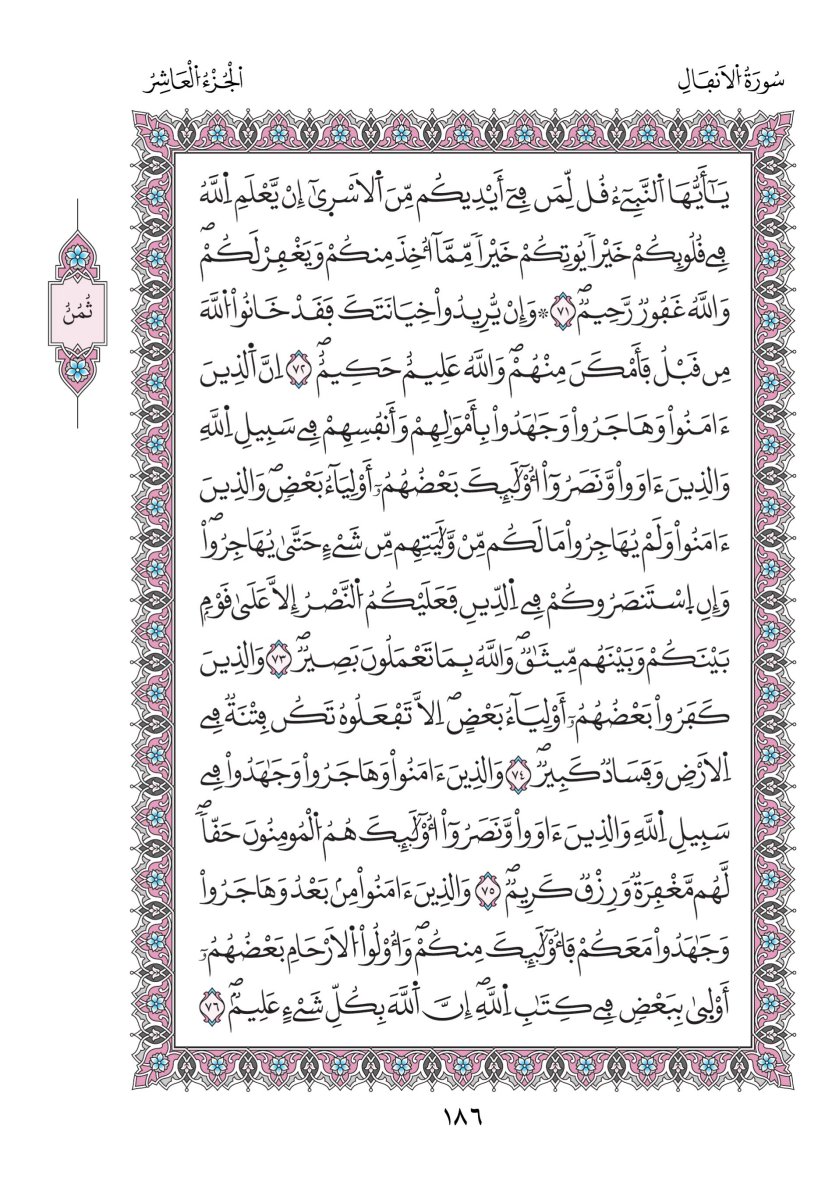 سُورَةُ اُ۬لَانفَالِ
اَ۬لْجُزْءُ اُ۬لْعَاشِرُ
يَٰٓأَيُّهَا اَ۬لنَّبِےٓءُ قُل لِّمَن فِےٓ أَيْدِيكُم مِّنَ اَ۬لَاسْر۪ىٰٓ إِنْ يَّعْلَمِ اِ۬للَّهُ
فِے قُلُوبِكُمْ خَيْراٗ يُوتِكُمْ خَيْراٗ مِّمَّآ أُخِذَ مِنكُمْ وَيَغْفِرْ لَكُمْۖ
وَاللَّهُ غَفُورٞ رَّحِيمٞۖ ٧١ ۞ وَإِنْ يُّرِيدُواْ خِيَانَتَكَ فَقَدْ خَانُواْ اُ۬للَّهَ
مِن قَبْلُ فَأَمْكَنَ مِنْهُمْۖ وَاللَّهُ عَلِيمٌ حَكِيمٌۖ ٧٢ اِنَّ اَ۬لذِينَ
ءَامَنُواْ وَهَاجَرُواْ وَجَٰهَدُواْ بِأَمْوَٰلِهِمْ وَأَنفُسِهِمْ فِے سَبِيلِ اِ۬للَّهِ
وَالذِينَ ءَاوَواْ وَّنَصَرُوٓاْ أُوْلَٰٓئِكَ بَعْضُهُمُۥٓ أَوْلِيَآءُ بَعْضٖۖ وَالذِينَ
ءَامَنُواْ وَلَمْ يُهَاجِرُواْ مَا لَكُم مِّنْ وَّلَٰيَتِهِم مِّن شَےْءٍ حَتَّىٰ يُهَاجِرُواْۖ
وَإِنِ اِ۪سْتَنصَرُوكُمْ فِے اِ۬لدِّينِ فَعَلَيْكُمُ اُ۬لنَّصْرُ إِلَّا عَلَىٰ قَوْمِۢ
بَيْنَكُمْ وَبَيْنَهُم مِّيثَٰقٞۖ وَاللَّهُ بِمَا تَعْمَلُونَ بَصِيرٞۖ ٧٣ وَالذِينَ
كَفَرُواْ بَعْضُهُمُۥٓ أَوْلِيَآءُ بَعْضٍۖ اِلَّا تَفْعَلُوهُ تَكُن فِتْنَةٞ فِے
اِ۬لَارْضِ وَفَسَادٞ كَبِيرٞۖ ٧٤ وَالذِينَ ءَامَنُواْ وَهَاجَرُواْ وَجَٰهَدُواْ فِے
سَبِيلِ اِ۬للَّهِ وَالذِينَ ءَاوَواْ وَّنَصَرُوٓاْ أُوْلَٰٓئِكَ هُمُ اُ۬لْمُومِنُونَ حَقّاٗۖ
لَّهُم مَّغْفِرَةٞ وَرِزْقٞ كَرِيمٞۖ ٧٥ وَالذِينَ ءَامَنُواْ مِنۢ بَعْدُ وَهَاجَرُواْ
وَجَٰهَدُواْ مَعَكُمْ فَأُوْلَٰٓئِكَ مِنكُمْۖ وَأُوْلُواْ اُ۬لَارْحَامِ بَعْضُهُمُۥٓ
أَوْلَىٰ بِبَعْضٖ فِے كِتَٰبِ اِ۬للَّهِۖ إِنَّ اَ۬للَّهَ بِكُلِّ شَےْءٍ عَلِيمٞۖ ٧٦
ثُمُنُ
١٨٦